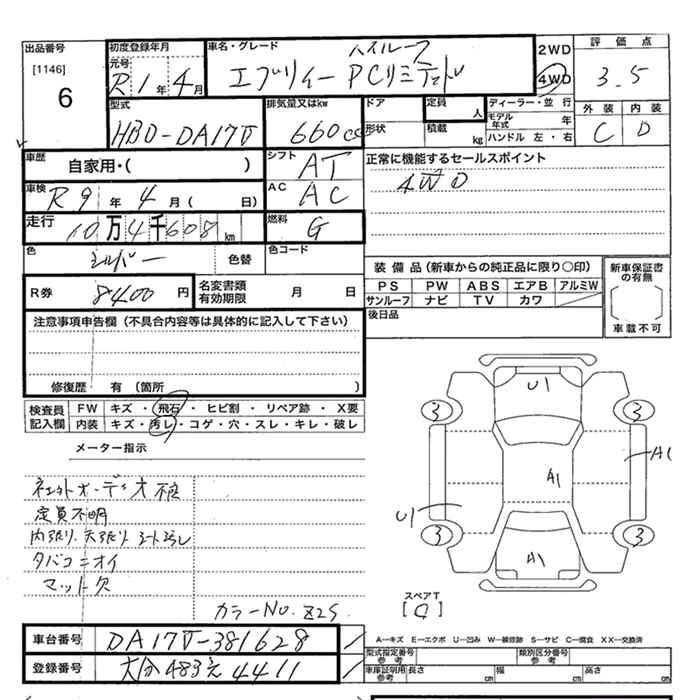 出品番号
[1146]
6
初度登録年月
元号
R1年4月
車名・グレード
ハイルーフ
エブリイー PCリミテッド
2WD
4WD
評価点
3.5
外装 内装
C D
型式
HBD-DA17V
排気量又はkw
660cc
ドア
形状
定員
人
積載
kg
ディーラー・並行
モデル年式 年
ハンドル 左・右
車歴
自家用・( )
シフト
AT
正常に機能するセールスポイント
4WD
車検
R9年4月( 日)
AC
AC
走行
10万4千608km
燃料
G
色
シルバー
色替
色コード
装備品(新車からの純正品に限り○印)
PS PW ABS エアB アルミW
サンルーフ ナビ TV カワ
新車保証書の有無
車載不可
R券
8400円
名変書類有効期限
月 日
後日品
注意事項申告欄(不具合内容等は具体的に記入して下さい)
修復歴 有(箇所 )
検査員記入欄
FW キズ・飛石・ヒビ割・リペア跡・X要
内装 キズ・汚レ・コゲ・穴・スレ・キレ・破レ
メーター指示
定員不明
内張り、天張り シート汚レ
タバコニオイ
マット欠
カラーNo. Z2S
U1
3
3
A1
A1
U1
3
3
A1
スペアT
A-キズ E-エクボ U-凹み W-補修跡 S-サビ C-腐食 XX-交換済
車台番号
DA17V-381628
登録番号
大分483え4411
型式指定番号
参考
類別区分番号
参考
車庫証明用参考
長さ cm 幅 cm 高さ cm